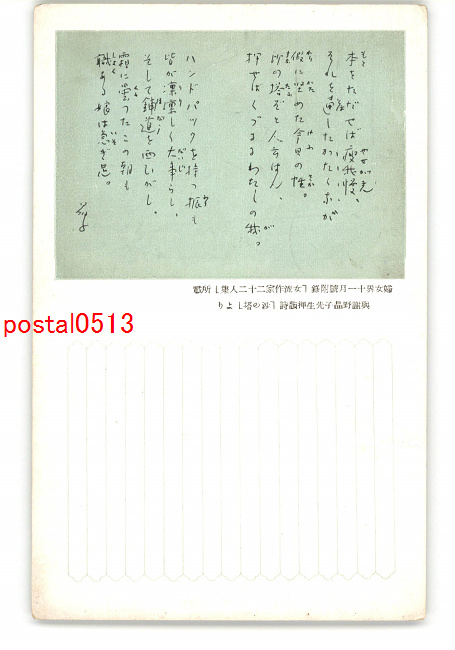 本をただせば痩我慢、
それを通したかたくなが
仮に堅めた今日の性。
砂の塔ぞと人云はん、
押せばくづるるわたしの我。
ハンドバックを持つ振も
皆が凛凛しく大事らし、
そして鋪道を西ひがし。
霜に曇つたこの朝も
職ある娘は急ぎ足。
晶子
婦女界十一月號附錄「女流作家二十二人集」所載
與謝野晶子先生 詩「砂の塔」より
postal0513